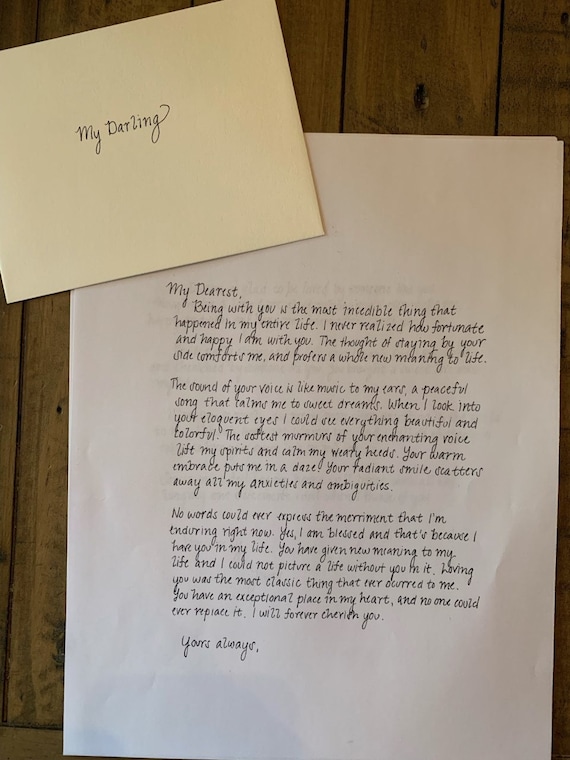 My Darling
My Dearest,
Being with you is the most incedible thing that
happened in my entire life. I never realized how fortunate
and happy I am with you. The thought of staying by your
side comforts me, and profers a whole new meaning to life.
The sound of your voice is like music to my ears, a peaceful
song that calms me to sweet dreams. When I look into
your eloquent eyes I could see everything beautiful and
colorful. The softest murmurs of your enchanting voice
lift my spirits and calm my weary heeds. Your warm
embrace puts me in a daze. Your radiant smile scatters
away all my anxieties and ambiguities.
No words could ever express the merriment that I'm
enduring right now. Yes, I am blessed and that's because I
have you in my life. You have given new meaning to my
life and I could not picture a life without you in it. Loving
you was the most classic thing that ever ocurred to me.
You have an exceptional place in my heart, and no one could
ever replace it. I will forever cherish you.
Yours always,